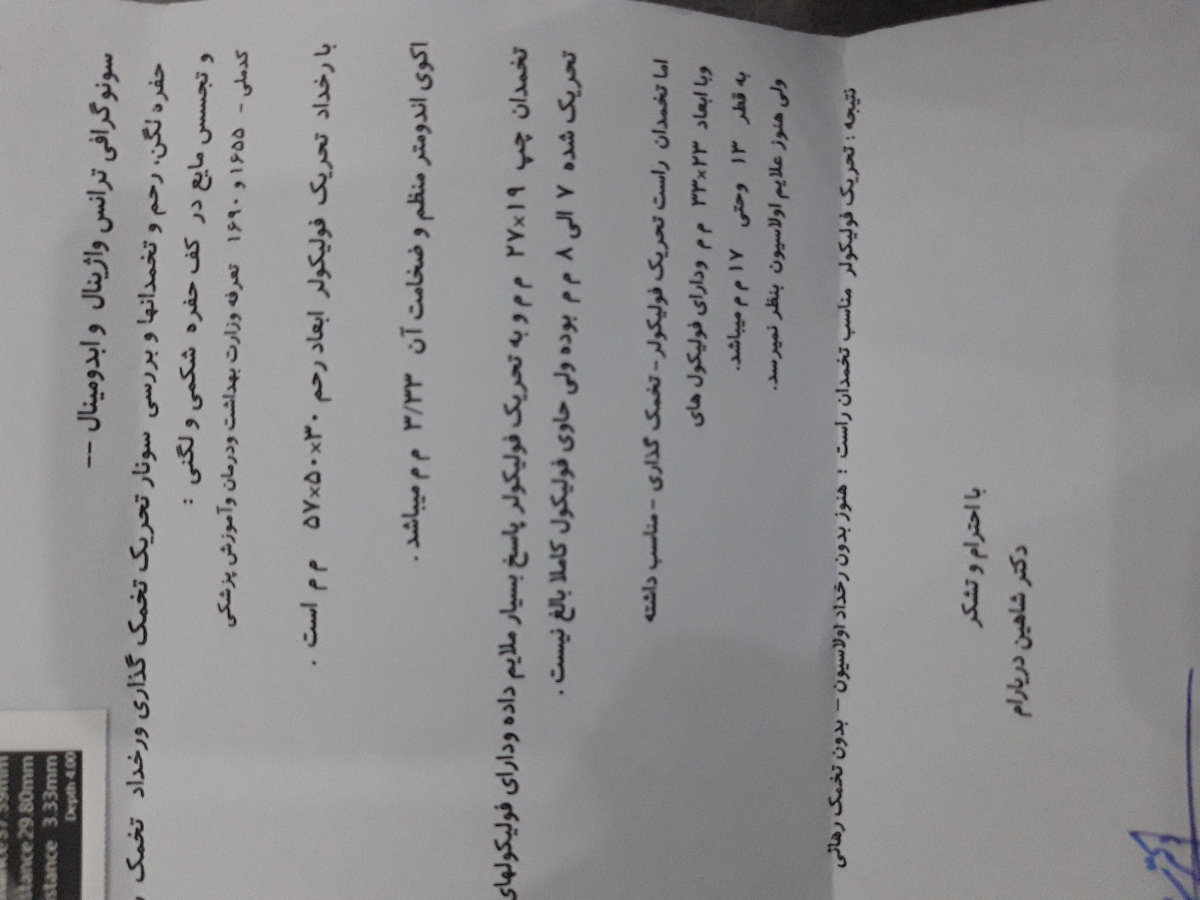 سونوگرافی ترانس واژینال و ابدومینال --
حفره لگن، رحم و تخمدانها و بررسی سونار تحریک تخمک گذاری ورخداد تخمک
و تجسس مایع در کف حفره شکمی و لگنی :
کدملی - ۱۶۵۵ و ۱۶۹۰ تعرفه وزارت بهداشت ودرمان وآموزش پزشکی
با رخداد تحریک فولیکولر ابعاد رحم ۳۰×۵۰×۵۷ م م است .
اکوی اندومتر منظم و ضخامت آن ۳/۳۳ م م میباشد .
تخمدان چپ ۱۹×۲۷ م م و به تحریک فولیکولر پاسخ بسیار ملایم داده ودارای فولیکولهای
تحریک شده ۷ الی ۸ م م بوده ولی حاوی فولیکول کاملا بالغ نیست .
اما تخمدان راست تحریک فولیکولر - تخمک گذاری - مناسب داشته
وبا ابعاد ۲۳×۳۳ م م ودارای فولیکول های
به قطر ۱۳ وحتی ۱۷ م م میباشد.
ولی هنوز علایم اولاسیون بنظر نمیرسد.
نتیجه : تحریک فولیکولر مناسب تخمدان راست : هنوز بدون رخداد اولاسیون - بدون تخمک رهائی
با احترام و تشکر
دکتر شاهین دریارام
stance 29.80mm
stance 3.33mm
Depth 4.00